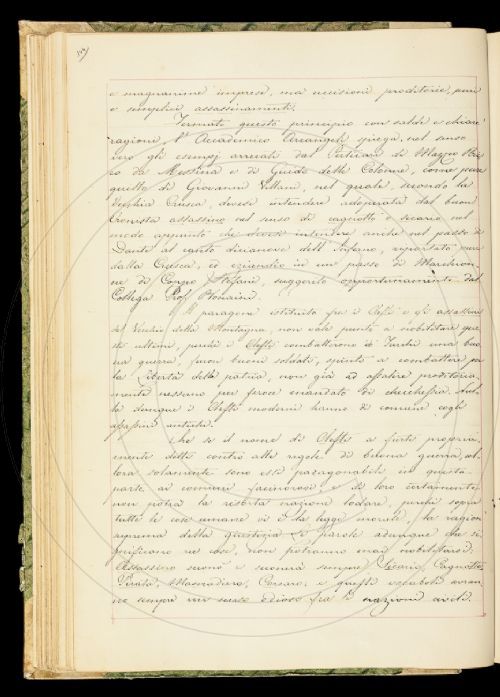 e magnanime imprese, ma uccisioni proditorie, puri
e semplici assassinamenti.
Fermato questo principio con salde e chiare
ragioni, l'Accademico Arcangeli spiega nel senso
vero gli esempj arrecati dal di Mazzeo Ric
co da Messina e di Guido delle Colonne, come pure
quello di Giovanni Villani, nel quale, secondo la
Vecchia Crusca, devesi intendere adoperata dal buon
Cronista assassino nel senso di cagnotto e sicario nel
modo appunto che devesi intendere anche nel passo di
Dante al canto dell'Inferno, riportato pure
dalla Crusca, ed eziandio in un passo di Marchion
ne di Coppo Stefani, suggerito opportunamente dal
Collega Prof.
Il paragone istituito fra i Cleffi e gli assassini
del Vecchio della Montagna, non vale punto a nobilitare que
sti ultimi, perchè i Cleffi combatterono i Turchi una buo
na guerra, furon buoni soldati, spinti a combattere per
la libertà della patria, non già ad assalire proditoria
mente nessuno per feroce mandato di chicchessia. Nul
la dunque i Cleffi moderni hanno di comune cogli
assassini antichi.
Che se il nome di Cleffi a furti propria
mente detti contro alle regole di buona guerra, al
lora solamente sono essi paragonabili in questa
parte ai comuni facinorosi, e di loro certamente
non potrà la risorta nazione lodarsi, perchè sopra
tutte le cose umane vi è la legge morale, la ragion
suprema della giustizia. Le parole adunque che si
gnificano ree cose, non potranno mai nobilitarsi.
Assassino suonò e suonerà sempre Sicario, Cagnotto,
Pirata, Masnadiero, Corsaro; e questi vocaboli avran
no sempre un senso odioso fra le nazioni civili.